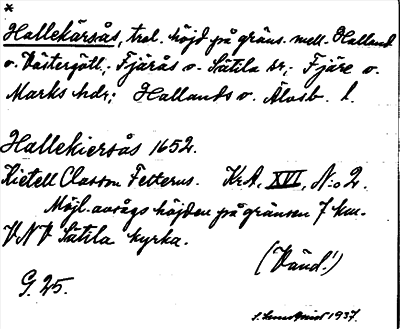 *
Hallekärsås, trol. höjd på gräns. mell. Halland
o. Västergötl.; Fjärås o. Sätila sr; Fjäre o.
Marks hdr; Hallands o. Älvsb. l.
Hallekiersås 1652.
Kietell Classon Felterus. KrA, XVI, N:o 2.
Möjl. avsågs höjden på gränsen 7 km.
VNV Sätila kyrka.
(Vänd!)
G. 25.
1937.